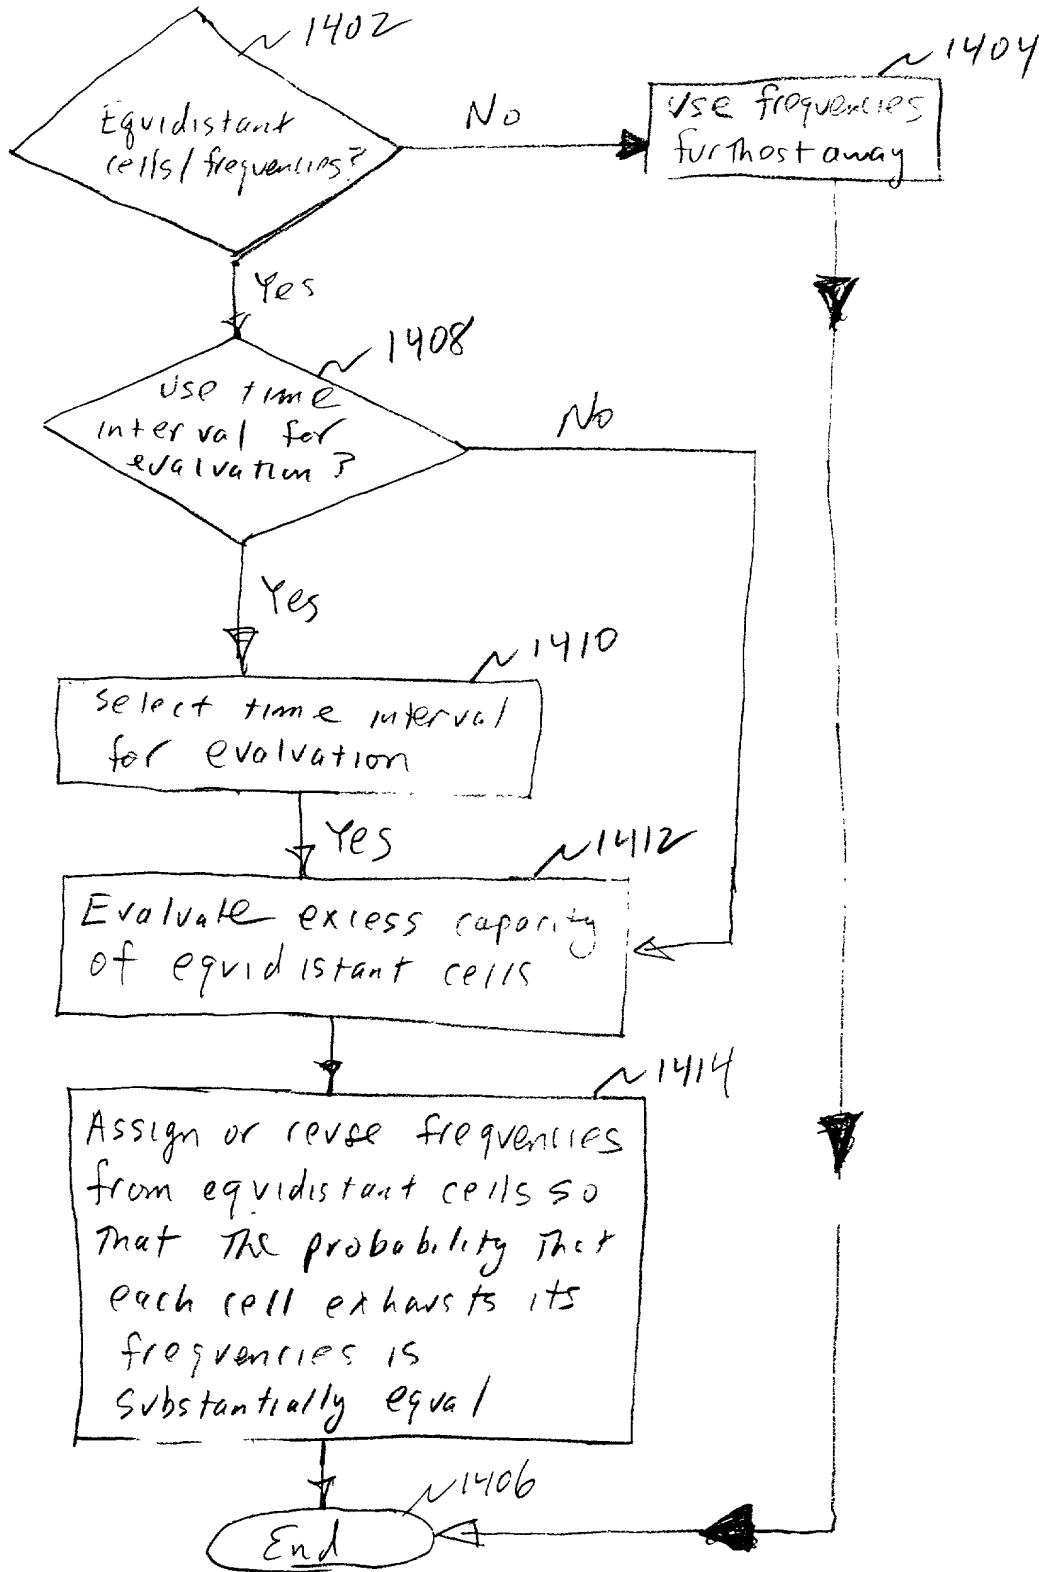 1402
Equidistant
cells/frequencies?
No
1404
Use frequencies
furthest away
Yes
1408
Use time
interval for
evaluation?
No
Yes
1410
Select time interval
for evaluation
Yes
1412
Evaluate excess capacity
of equidistant cells
1414
Assign or reuse frequencies
from equidistant cells so
that the probability that
each cell exhausts its
frequencies is
substantially equal
1406
End